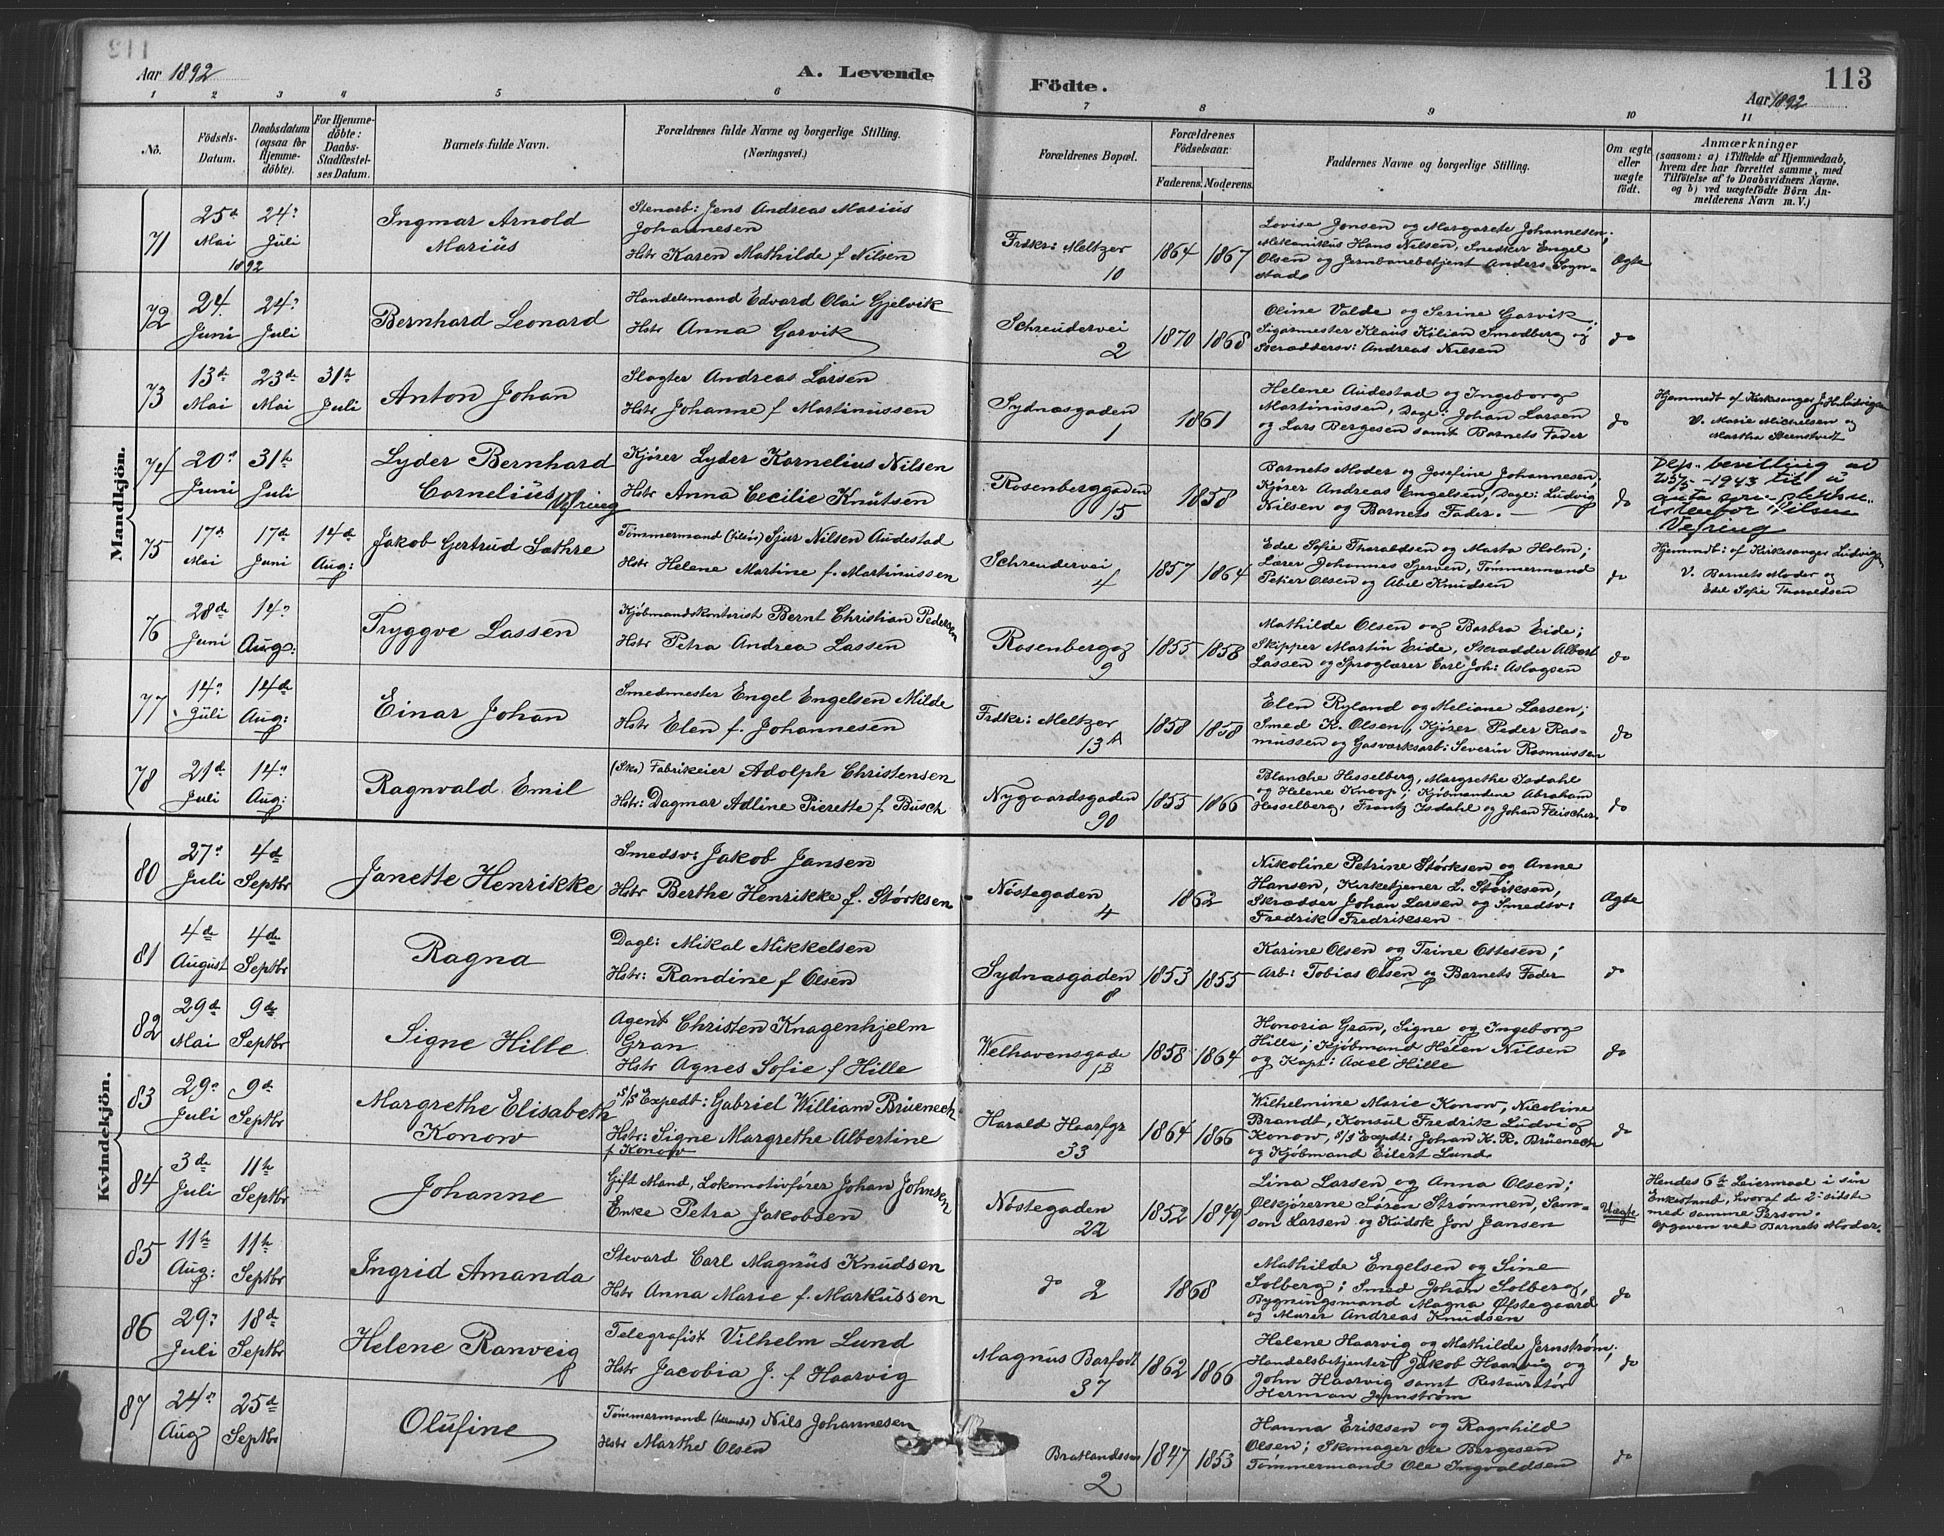 Aar 1892
A. Levende
Födte.
113
Aar 1892
1 2 3 4 5 6 7 8 9 10 11
No.
Födsels-Datum.
Daabsdatum (ogsaa for Hjemmedöbte).
For Hjemmedöbte: Daabs-Stadfæstelses Datum.
Barnets fulde Navn.
Forældrenes fulde Navne og borgerlige Stilling. (Næringsvei.)
Forældrenes Bopæl.
Forældrenes Födselsaar.
Faderens. Moderens.
Faddernes Navne og borgerlige Stilling.
Om ægte eller uægte födt.
Anmærkninger
(saasom: a) i Tilfælde af Hjemmedaab, hvem der har forrettet samme, med Tilföielse af to Daabsvidners Navne, og b) ved uægtefödte Börn Anmelderens Navn m. V.)
Mandkjön.
71
25de Mai 1892
24de Juli
Ingmar Arnold
Marius
Stenarb: Jens Andreas Marius
Johannesen
Hstr Karen Mathilde f Nilsen
Frdkr: Meltzer
10
1864 1867
Lovise Jonsen og Margarete Johannesen;
Mekanikus Hans Nilsen, Smedker Engel
Olsen og Jernbanebetjent Anders Sogn-
stad
Ægte
72
24 Juni
24de Juli
Bernhard Leonard
Handelsmand Edvard Olai Gjelvik
Hstr Anna Garvik
Schreudervei
2
1870 1868
Oline Valde og Serine Garvik;
Sigarmester Klaus Kilian Smedberg og
Skræddersv: Andreas Nilsen
do
73
13de Mai
23de Mai
31te Juli
Anton Johan
Slagter Andreas Larsen
Hstr Johanne f Martinussen
Sydnæsgaden
1
1861
Helene Audestad og Ingeborg
Martinussen, Dagl: Johan Larsen
og Lars Bergesen samt Barnets Fader
do
Hjemmedt af Kirkesanger J. H. Ludvigsen
V. Marie Michelsen og
Martha Steenstvedt
74
20de Juni
31te Juli
Lyder Bernhard
Cornelius
Kjører Lyder Kornelius Nilsen
Hstr Anna Cecilie Knutsen
Rosenberggaden
15
1858
Barnets Moder og Josefine Johannesen,
Kjører Andreas Engelsen, Dagl: Ludvig
Nilsen og Barnets Fader.
do
Dep. bevilling av
1943 til å
75
17de Mai
17de Juni
14de Aug:
Jakob Gertrud Sæthre
Tømmermand Sjur Nilsen Audestad
Hstr Helene Martine f. Martinussen
Schreudervei
4
1857 1864
Edel Sofie Tharaldsen og Marta Holm;
Lærer Johannes Sjerven, Tømmermand
Petter Olsen og Abel Knudsen
do
Hjemmdt: af Kirkesanger Ludvigsen
V. Barnets Moder og
Edel Sofie Tharaldsen
76
28de Juni
14de Aug:
Tryggve Lassen
Kjøbmandskontorist Bernt Christian Pedersen
Hstr Petra Andrea Lassen
Rosenbergg
9
1855 1858
Mathilde Olsen og Barbra Eide;
Skipper Martin Eide, Skrædder Albert
Lassen og Sproglærer Carl Joh: Aslagsen
do
77
14de Juli
14de Aug:
Einar Johan
Smedmester Engel Engelsen Milde
Hstr Elen f. Johannesen
Frdkr: Meltzer
13A
1858 1858
Elen Ryland og Meliane Larsen;
Smed K. Olsen, Kjører Peder Ras-
mussen og Gasværksarb: Severin Rasmussen
do
78
21de Juli
14de Aug:
Ragnvald Emil
(Sko) Fabrikeier Adolph Christensen
Hstr: Dagmar Adline Pierette f Busch
Nygaardsgaden
90
1855 1866
Blanche Hesselberg, Margrethe Isdahl
og Helene Knoop; Kjøbmændene Abraham
Hesselberg, Frantz Isdahl og Johan Fleischer
do
Kvindekjön.
80
27de Juli
4de Septbr
Janette Henrikke
Smedsv: Jakob Jansen
Hstr Berthe Henrikke f. Størksen
Nøstegaden
4
1862
Nikoline Petrine Størksen og Anne
Hansen, Kirketjener L. Størksen,
Skrædder Johan Larsen og Smedsv:
Fredrik Fredriksen
Ægte
81
4de August
4de Septbr
Ragna
Dagl: Mikal Mikkelsen
Hstr: Randine f Olsen
Sydnæsgaden
8
1853 1855
Karine Olsen og Trine Ottesen;
Arb: Tobias Olsen og Barnets Fader
do
82
29de Mai
9de Septbr
Signe Hille
Agent Christen Knagenhjelm
Gran
Hstr Agnes Sofie f Hille
Welhavensgade
1B
1858 1864
Honoria Gran, Signe og Ingeborg
Hille; Kjøbmand Helen Nilsen
og Kapt: Axel Hille
do
83
29de Juli
9de Septbr
Margrethe Elisabeth
Konow
S/S Expedt: Gabriel William Brüenech
Hstr: Signe Margrethe Albertine
f Konow
Harald Haarfgr
33
1864 1866
Wilhelmine Marie Konow, Nicoline
Brandt, Konsul Fredrik Ludvig
Konow, S/S Expedt: Johan K. R. Brüenech
og Kjøbmand Eilert Lund
do
84
3de Juli
11te Septbr
Johanne
Gift Mand, Lokomotivfører Johan Johnsen
Enke Petra Jakobsen
Nøstegaden
22
1852 1849
Lina Larsen og Anna Olsen;
Ølkjørerne Søren Strømmen, Sam-
son Larsen og Kudsk Jon Jansen
Uægte
Hendes 6te Leiermaal i sin
Enkestand, hvoraf de 2 sidste
med samme Person.
Opgaven ved Barnets Moder.
85
11te Aug:
11te Septbr
Ingrid Amanda
Stevard Carl Magnus Knudsen
Hstr Anna Marie f. Markussen
do 2
1868
Mathilde Engelsen og Sine
Solberg; Smed Johan Solberg,
Bygningsmand Magna Øfstegaard
og Murer Andreas Knudsen
do
86
29de Juli
18de Septbr
Helene Ranveig
Telegrafist Vilhelm Lund
Hstr Jacobia J. f Haarvig
Magnus Barfodt
37
1862 1866
Helene Haarvig og Mathilde Jernstrøm;
Handelsbetjenter Jakob Haarvig og
John Haarvig samt Restauratør
Herman Jernstrøm
do
87
24de Aug
25de Septbr
Olufine
Tømmermand Nils Johannesen
Hstr Marthe Olsen
2
1847 1853
Hanna Eriksen og Ragnhild
Olsen; Skomager Ole Bergesen
Tømmermand Ole Ingvaldsen
do